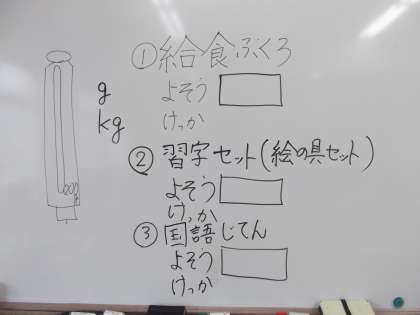 ①給食ぶくろ
よそう
けっか
g
kg
②習字セット(絵の具セット)
よそう
けっか
③国語じてん
よそう
けっか